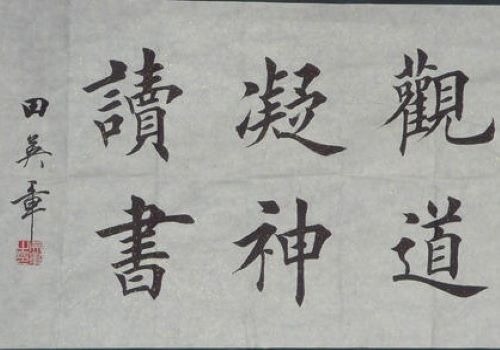 觀道
凝神
讀書
田英章